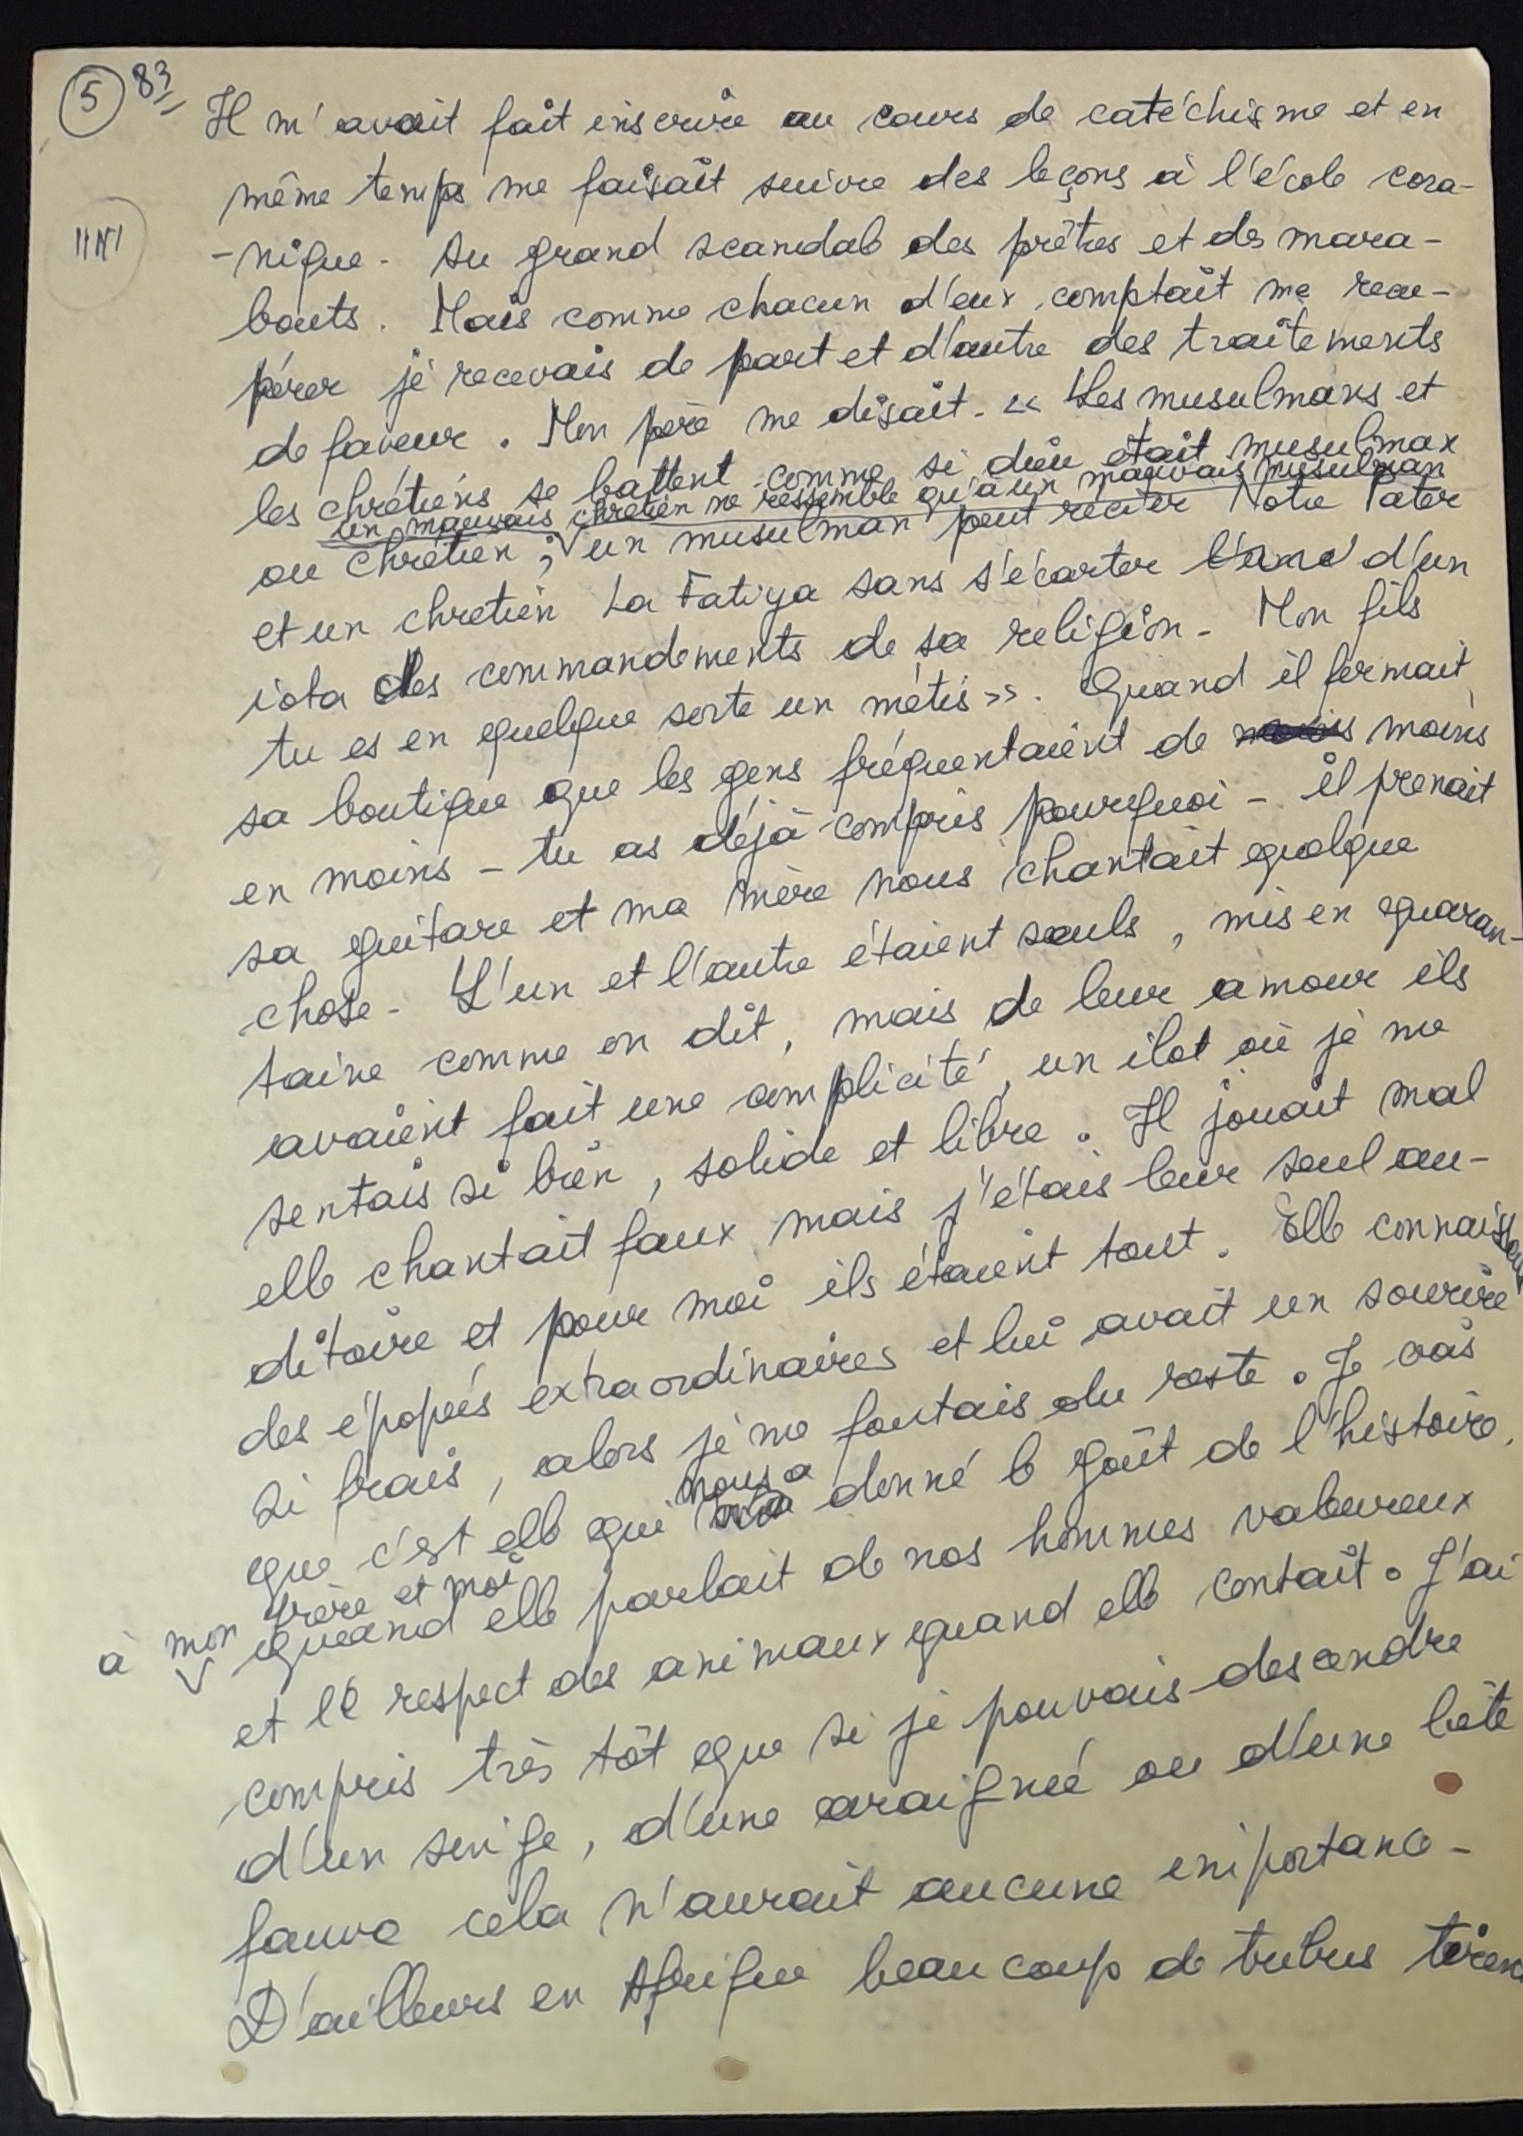 5 83
Il m'avait fait inscrire au cours de catéchisme et en
même temps me faisait suivre des leçons à l'école cora-
-nique. Au grand scandale des prêtres et des mara-
bouts. Mais comme chacun d'eux comptait me récu-
pérer je recevais de part et d'autre des traitements
de faveur. Mon père me disait. « Les musulmans et
les chrétiens se battent comme si dieu était musulman
un mauvais chrétien ne ressemble qu'à un mauvais musulman
ou chrétien ; un musulman peut réciter Notre Pater
et un chrétien La Fatiya sans s'écarter d'un
iota des commandements de sa religion. Mon fils
tu es en quelque sorte un métis ». Quand il fermait
sa boutique que les gens fréquentaient de moins moins
en moins - tu as déjà compris pourquoi - il prenait
sa guitare et ma mère nous chantait quelque
chose. L'un et l'autre étaient seuls, mis en quaran-
taine comme on dit, mais de leur amour ils
avaient fait une complicité, un ilot où je me
sentais si bien, solide et libre. Il jouait mal
elle chantait faux mais j'étais leur seul au-
ditoire et pour moi ils étaient tout. Elle connaissait
des épopées extraordinaires et lui avait un sourire
si frais, alors je me foutais du reste. Je vois
que c'est elle qui nous a donné le goût de l'histoire,
à mon frère et moi
quand elle parlait de nos hommes valeureux
et le respect des animaux quand elle contait. J'ai
compris très tôt que si je pouvais descendre
d'un singe, d'une araignée ou d'une bête
fauve cela n'aurait aucune importance.
D'ailleurs en Afrique beaucoup de tribus tirent